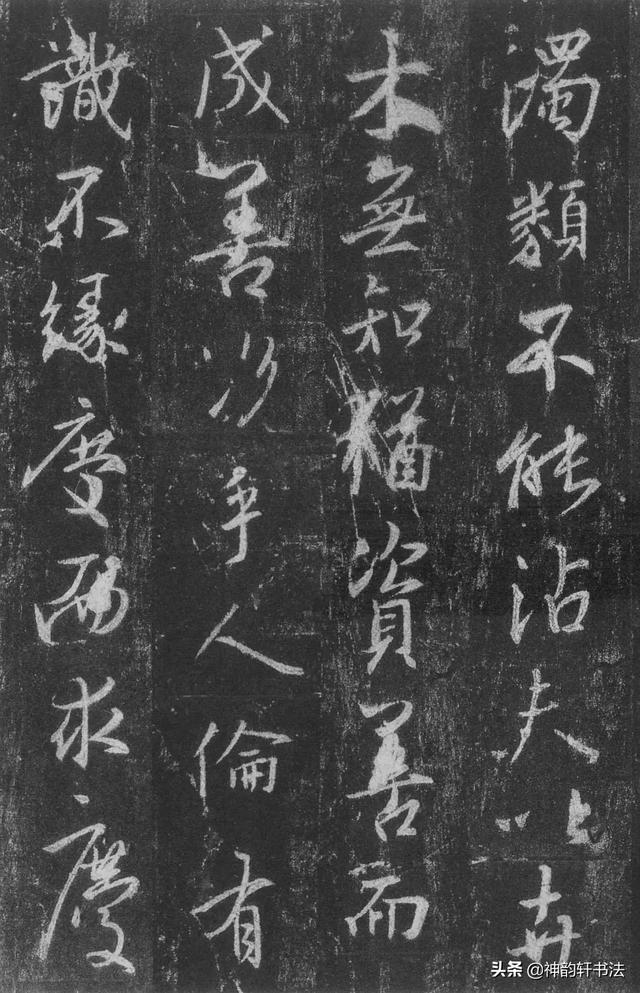 濁類不能沾夫以卉
木無知猶資善而
成善况乎人倫有
識不緣慶而求慶
头条 @神韵轩书法